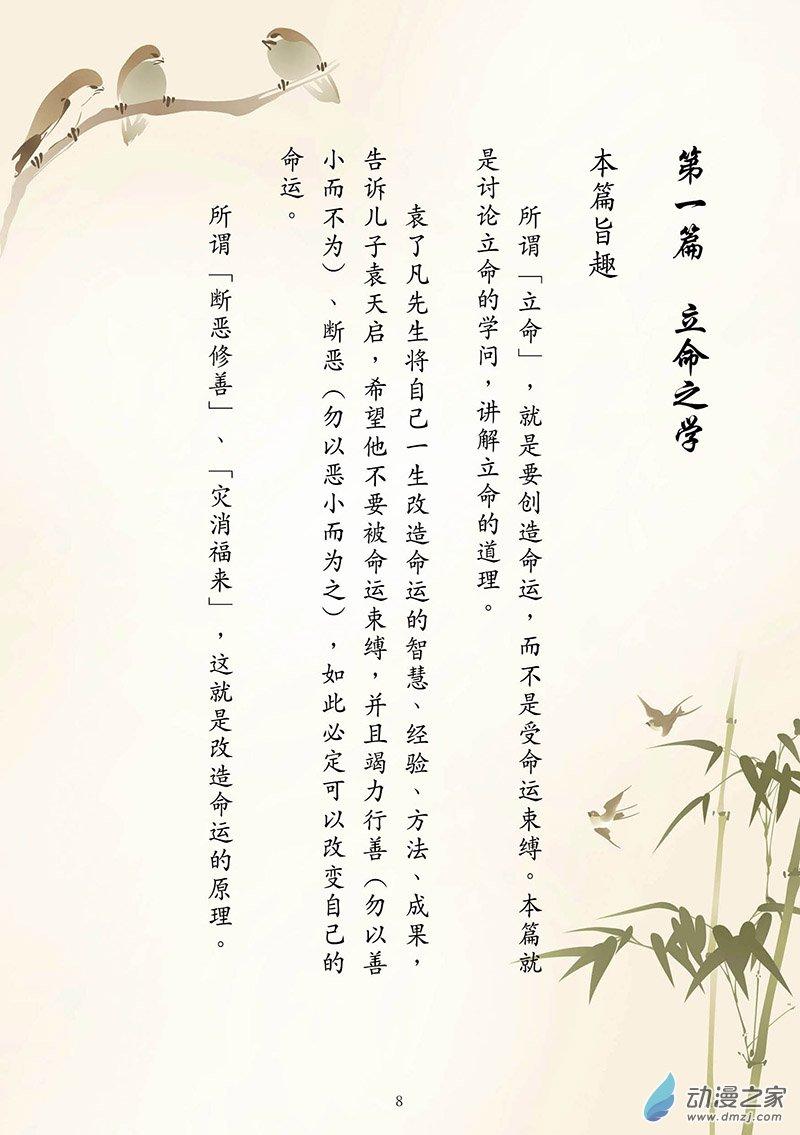 第一篇　立命之学
本篇旨趣
所谓「立命」，就是要创造命运，而不是受命运束缚。本篇就
是讨论立命的学问，讲解立命的道理。
袁了凡先生将自己一生改造命运的智慧、经验、方法、成果，
告诉儿子袁天启，希望他不要被命运束缚，并且竭力行善（勿以善
小而不为）、断恶（勿以恶小而为之），如此必定可以改变自己的
命运。
所谓「断恶修善」、「灾消福来」，这就是改造命运的原理。
8
动漫之家
www.dmzj.com